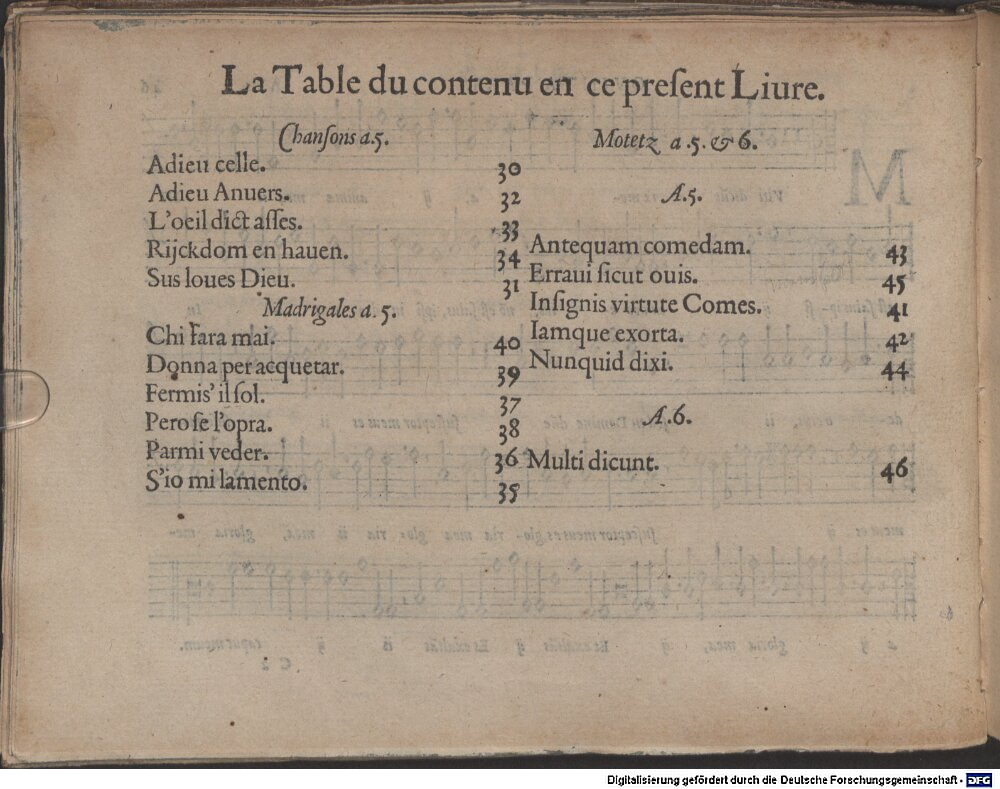 La Table du contenu en ce preſent Liure.
Chanſons a.5.
Adieu celle. 30
Adieu Anuers. 32
L'oeil dict aſſes. 33
Rijckdom en hauen. 34
Sus loues Dieu. 31
Madrigales a. 5.
Chi fara mai. 40
Donna per acquetar. 39
Fermis' il ſol. 37
Pero ſe l'opra. 38
Parmi veder. 36
S'io mi lamento. 35
Motetz a.5. & 6.
A.5.
Antequam comedam. 43
Erraui ſicut ouis. 45
Inſignis virtute Comes. 41
Iamque exorta. 42
Nunquid dixi. 44
A.6.
Multi dicunt. 46
Digitalisierung gefördert durch die Deutsche Forschungsgemeinschaft - DFG